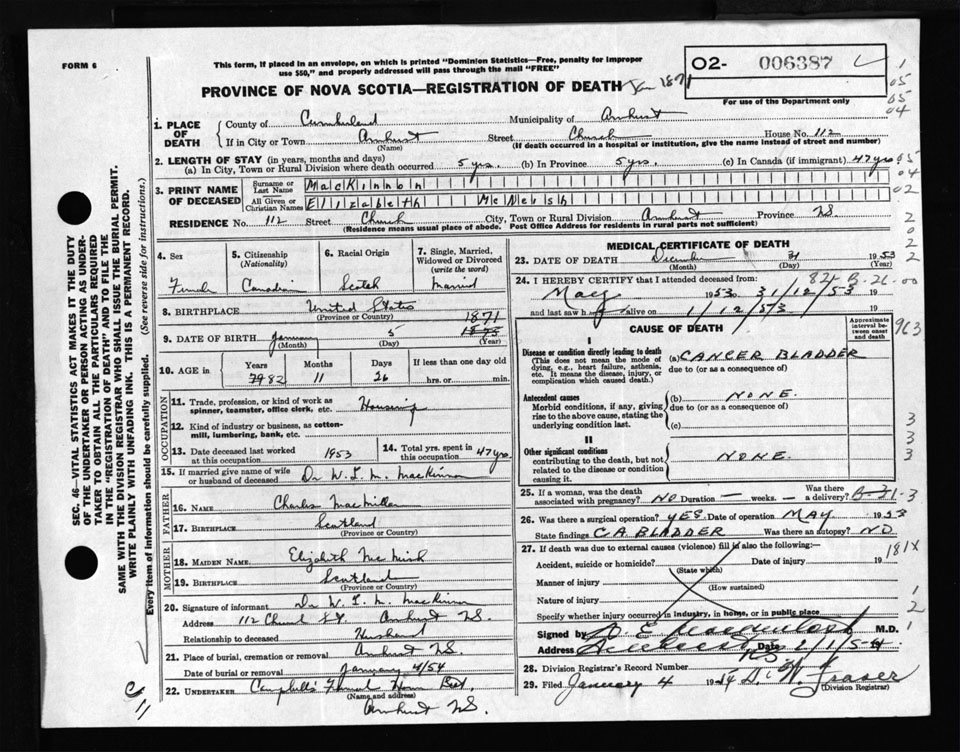 FORM 6
This form, if placed in an envelope, on which is printed "Dominion Statistics—Free, penalty for improper
use $50," and properly addressed will pass through the mail "FREE"
O2- 006387
For use of the Department only
PROVINCE OF NOVA SCOTIA—REGISTRATION OF DEATH Jan 1871
1
05
05
04
1. PLACE OF DEATH
County of Cumberland Municipality of Amherst
If in City or Town Amherst Street Church House No. 112
(Name) (If death occurred in a hospital or institution, give the name instead of street and number)
2. LENGTH OF STAY (in years, months and days)
(a) In City, Town or Rural Division where death occurred 5 yrs. (b) In Province 5 yrs. (c) In Canada (if immigrant) 47 yrs
3. PRINT NAME OF DECEASED
Surname or Last Name MacKinnon
All Given or Christian Names Elizabeth McNeish
RESIDENCE No. 112 Street Church City, Town or Rural Division Amherst Province N.S.
(Residence means usual place of abode. Post Office Address for residents in rural parts not sufficient)
4. Sex
Female
5. Citizenship
(Nationality)
Canadian
6. Racial Origin
Scotch
7. Single, Married, Widowed or Divorced
(write the word)
Married
8. BIRTHPLACE United States
(Province or Country)
1871
9. DATE OF BIRTH January 5 1875
(Month) (Day) (Year)
10. AGE in
Years Months Days If less than one day old
82 11 26 hrs. or min.
OCCUPATION
11. Trade, profession, or kind of work as
spinner, teamster, office clerk, etc.
12. Kind of industry or business, as cotton-
mill, lumbering, bank, etc.
13. Date deceased last worked
at this occupation 1953
14. Total yrs. spent in
this occupation 47 yrs.
15. If married give name of wife
or husband of deceased Dr W. L. M. MacKinnon
FATHER
16. NAME Charles MacMillan
17. BIRTHPLACE Scotland
(Province or Country)
MOTHER
18. MAIDEN NAME Elizabeth McNish
19. BIRTHPLACE Scotland
(Province or Country)
20. Signature of informant Dr W. L. M. MacKinnon
Address 112 Church St. Amherst N.S.
Relationship to deceased Husband
21. Place of burial, cremation or removal Amherst N.S.
Date of burial or removal January 4/54
22. UNDERTAKER Campbell's Funeral Home
(Name and address)
Amherst N.S.
MEDICAL CERTIFICATE OF DEATH
23. DATE OF DEATH December 31 1953
(Month) (Day) (Year)
24. I HEREBY CERTIFY that I attended deceased from:
May 1953 to 31/12/53 19
and last saw h alive on 1/12/53 19
CAUSE OF DEATH
Approximate interval between onset and death
I
Disease or condition directly leading to death
(This does not mean the mode of
dying, e.g., heart failure, asthenia,
etc. It means the disease, injury, or
complication which caused death.)
(a) CANCER BLADDER
due to (or as a consequence of)
Antecedent causes
Morbid conditions, if any, giving
rise to the above cause, stating the
underlying condition last.
(b) NONE.
due to (or as a consequence of)
(c)
II
Other significant conditions
contributing to the death, but not
related to the disease or condition
causing it.
NONE.
25. If a woman, was the death
associated with pregnancy? NO Duration — weeks. Was there a delivery?
26. Was there a surgical operation? YES Date of operation MAY 1953
State findings CA BLADDER Was there an autopsy? NO
27. If death was due to external causes (violence) fill in also the following:—
Accident, suicide or homicide? Date of injury 19
(State which)
181X
Manner of injury
(How sustained)
Nature of injury
Specify whether injury occurred in industry, in home, or in public place
Signed by M.D.
Address Amherst N.S. Date 2/1/54
28. Division Registrar's Record Number
29. Filed January 4 1954 D. W. Fraser
(Division Registrar)
SEC. 46—VITAL STATISTICS ACT MAKES IT THE DUTY
OF THE UNDERTAKER OR PERSON ACTING AS UNDER-
TAKER TO OBTAIN ALL THE PARTICULARS REQUIRED
IN THE "REGISTRATION OF DEATH" AND TO FILE THE
SAME WITH THE DIVISION REGISTRAR WHO SHALL ISSUE THE BURIAL PERMIT.
WRITE PLAINLY WITH UNFADING INK. THIS IS A PERMANENT RECORD.
Every item of information should be carefully supplied. (See reverse side for instructions.)